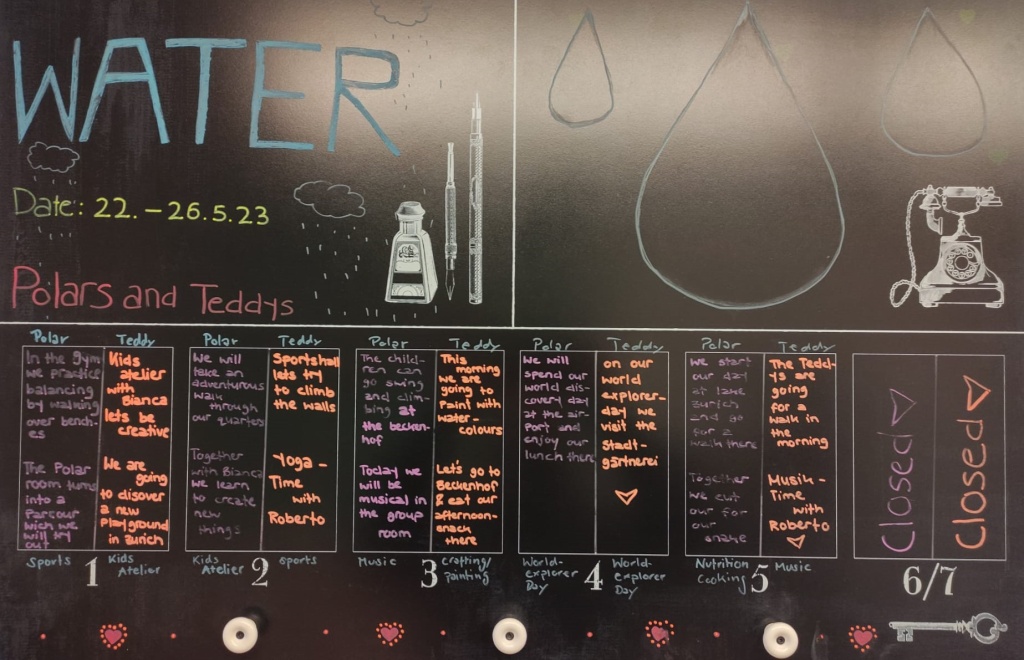 WATER
Date: 22. - 26.5.23
Polars and Teddys
Polar
In the Gym
we practice
balancing
by walking
over bench-
es
The Polar
room turns
into a
Parcour
wich we
will try
out
Sports
Teddy
Kids
atelier
with
Bianca
lets be
creative
We are
going
to disover
a new
Playground
in Zurich
Kids
Atelier
1
Polar
We will
take an
adventurous
walk
through
our quartes
Together
with Bianca
we learn
to create
new
things
Kids
Atelier
Teddy
Sportshall
lets try
to climb
the walls
Yoga -
Time
with
Roberto
Sports
2
Polar
The child-
ren can
go swing
and clim-
bing at
the becken-
hof
Today we
will be
musical in
the group
room
Music
Teddy
This
morning
we are
going to
Paint with
water-
colours
Let's go to
Beckenhof
& eat our
afternoon-
snack
there
Crafting/
Painting
3
Polar
We will
spend our
world dis-
covery day
at the air-
port and
enjoy our
lunch there
World-
explorer
Day
Teddy
on our
world
explorer-
day we
visit the
Stadt-
gärtnerei
World-
explorer
Day
4
Polar
We start
our day
at lake
Zurich
and go
for a
walk there
Together
we cut
our for
our
snake
Nutrition
Cooking
Teddy
The Tedd-
ys are
going
for a
walk in
the
morning
Musik -
Time
with
Roberto
Music
5
Closed
Closed
6/7